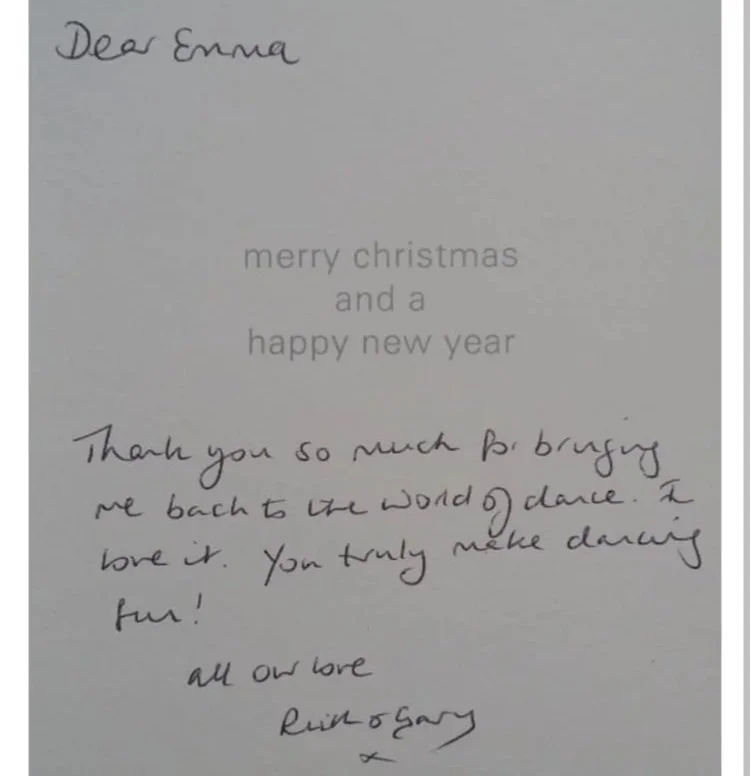 Dear Emma
merry christmas
and a
happy new year
Thank you so much for bringing
me back to the world of dance. I
love it. You truly make dancing
fun!
all our love
& Gary
x